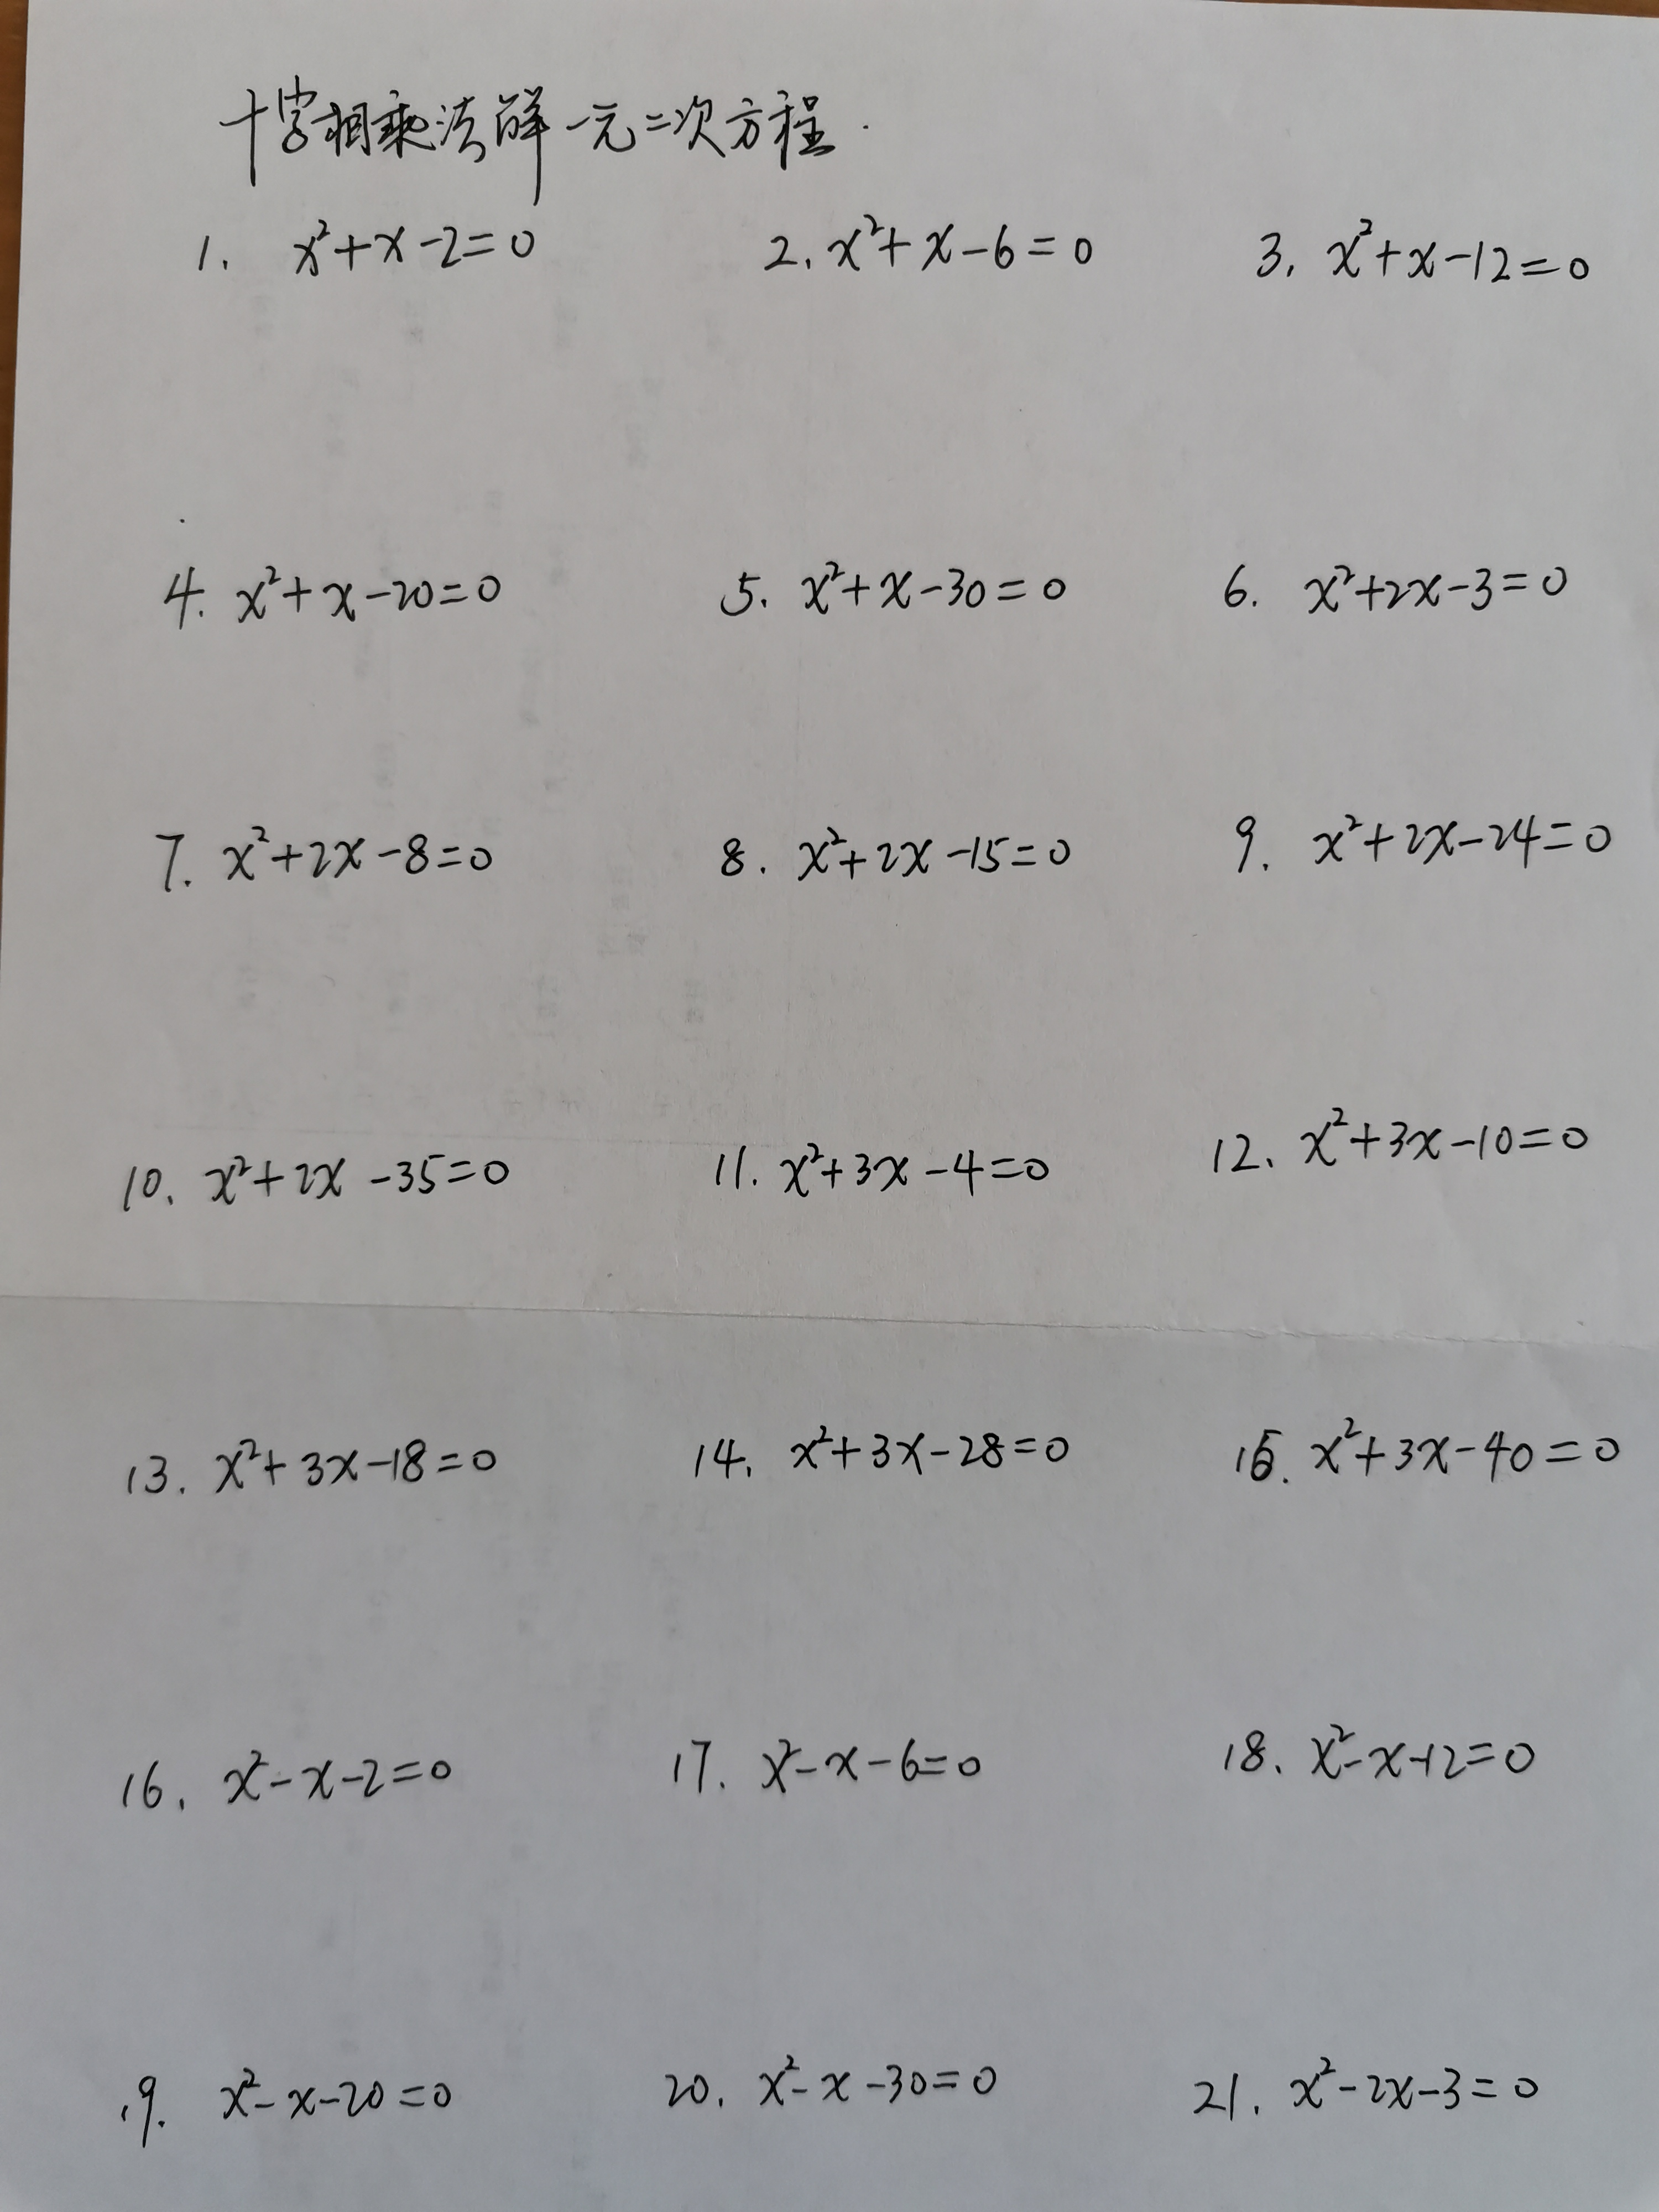 十字相乘法解一元二次方程.
1. x²+x-2=0 2. x²+x-6=0 3. x²+x-12=0
4. x²+x-20=0 5. x²+x-30=0 6. x²+2x-3=0
7. x²+2x-8=0 8. x²+2x-15=0 9. x²+2x-24=0
10. x²+2x-35=0 11. x²+3x-4=0 12. x²+3x-10=0
13. x²+3x-18=0 14. x²+3x-28=0 15. x²+3x-40=0
16. x²-x-2=0 17. x²-x-6=0 18. x²-x-12=0
19. x²-x-20=0 20. x²-x-30=0 21. x²-2x-3=0